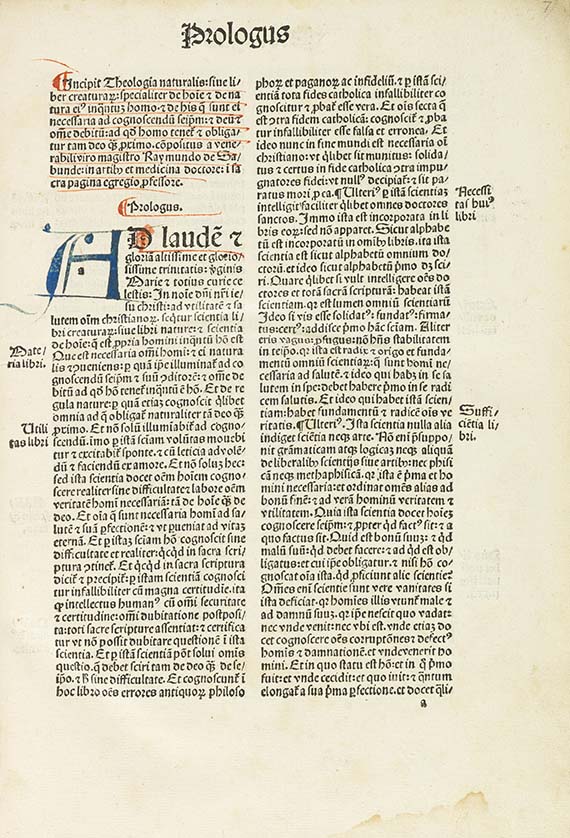 Prologus
7
Incipit Theologia naturalis: siue li/
ber creaturaꝝ: specialiter de hoie ⁊ de na
tura eiꝰ inqͣntus homo. ⁊ de his q̄ sunt ei
necessaria ad cognoscendū seipm̄: ⁊ deū ⁊
om̄e debitū: ad qđ homo tenet̄ ⁊ obliga/
tur tam deo qͣꝫ ꝓximo. cōpositus a vene/
rabili viro magistro Raymundo de Sa/
bunde: in artibꝰ et medicina doctore: ⁊ sa
cra pagina egregio ꝓfessore.
Prologus.
AD laudē ⁊
gloriā altissime et glorio/
sissime trinitatis: ꝟginis
Marie ⁊ totius curie ce
lestis: In noīe dn̄i nr̄i ie/
su christi: ad vtilitatē ⁊ sa
lutem oīm christianoꝝ. seq̄tur scientia li/
bri creaturaꝝ: siue libri nature: ⁊ scientia
de hoīe: q̄ est ꝓpria homini inqͣntū hō est
Que est necessaria om̄i homī: ⁊ ei natura
lis ⁊ ꝯueniens: ꝑ quā ip̄e illuminat̄ ad co
gnoscendū seipm̄ ⁊ suū ꝯditorē: ⁊ om̄e de
bitū ad qđ hō tenet̄ inqͣntū ē hō. Et de re
gula nature: ꝑ quā etiaꝫ cognoscit q̄libet
omnia ad q̄ obligat̄ naturaliter tā deo qͣꝫ
ꝓximo. Et nō solū illumīabit̄ ad cogno/
scendū. imo ꝑ istā sciām voluntas mouebi
tur ⁊ excitabit̄ sponte. ⁊ cū leticia ad volē/
dū ⁊ faciendū ex amore. Et nō soluꝫ hec:
sed ista scientia docet oēm hoīem cogno/
scere realiter sine difficultate ⁊ labore oēm
veritatē homī necessariā: tā de hoīe qͣꝫ de
deo. Et oīa q̄ sunt necessaria homī ad sa/
lutē ⁊ suā ꝑfectionē: ⁊ vt ꝑueniat ad vitaꝫ
eternā. Et ꝑ istaꝫ sciām hō cognoscit sine
difficultate et realiter: qc̄qd in sacra scri/
ptura ꝯtinet̄. Et qc̄qd in sacra scriptura
dicit̄ ⁊ precipit̄: ꝑ istam scientiā cognosci
tur infallibiliter cū magna certitudīe. ita
ꝙ intellectus humanꝰ cū om̄i securitate
⁊ certitudine: om̄i dubitatione postposi/
ta: toti sacre scripture assentiat: ⁊ certifica
tur vt nō possit dubitare questionē ī ista
scientia. Et ꝑ istā scientiā pōt solui om̄is
questio. q̄ debet sciri tam de deo qͣꝫ de se/
ipo. ⁊ h̄ sine difficultate. Et cognoscunt̄ ī
hoc libro oēs errores antiquoꝝ philoso
Mate/
ria libri.
Utili
tas libri
phoꝝ et paganoꝝ ac infideliū. ⁊ ꝑ istā sci/
entiā tota fides catholica infallibiliter co
gnoscitur ⁊ ꝓbat̄ esse vera. Et oīs secta q̄
est ꝯtra fidem catholicā: cognoscit̄ ⁊ ꝓba
tur infallibiliter esse falsa et erronea. Et
ideo nunc in fine mundi est necessaria oī
christiano: vt q̄libet sit munitus: solida/
tus ⁊ certus in fide catholica ꝯtra impu/
gnatores fidei: vt nullꝰ decipiat̄: ⁊ sit pa/
ratus mori ꝓ ea. ¶ Ulteriꝰ ꝑ istā scientiaꝫ
intelligit̄ faciliter q̄libet omnes doctores
sanctos. Immo ista est incorporata in li
bris eoꝝ: sed nō apparet. Sicut alphabe
tū est incorporatū in oībꝰ libris. ita ista
scientia est sicut alphabetū omnium do/
ctorū. et ideo sicut alphabetū pͥmo dꝫ sci/
ri. Quare q̄libet si vult intelligere oēs do
ctores et totā sacrā scripturā: habeat istā
scientiam. q̄ est lumen omniū scientiarū
Ideo si vis esse solidatꝰ: fundatꝰ: firma/
tus: certꝰ: addisce pͥmo hāc sciam. Aliter
eris vagus: ꝓfugus: nō hn̄s stabilitatem
in teipo. q̄ ista est radix ⁊ origo et funda/
mentū omniū scientiarꝫ. q̄ sunt homī ne/
cessaria ad salutē. ⁊ ideo qui habꝫ in se sa
lutem in spe: debet habere pͥmo in se radi
cem salutis. Et ideo qui habet istā scien/
tiam: habet fundamentū ⁊ radicē oīs ve
ritatis. ¶ Ulteriꝰ. Ista scientia nulla alia
indiget sciētia neqꝫ arte. Nō eni p̄suppo/
nit gramaticam atqꝫ logicaꝫ neqꝫ aliquā
de liberalibꝰ scientijs siue artibꝰ: nec phisi
cā neqꝫ methaphisicā. q̄ ista ē pͥma et ho
mini necessaria: et ordinat om̄es alias ad
bonū finē: ⁊ ad verā hominū veritatem ⁊
vtilitatem. Quia ista scientia docet hoīeꝫ
cognoscere seipm̄: ⁊ ꝓpter qđ factꝰ sit: ⁊ a
quo factus sit. Quid est bonū suuꝫ: ⁊ qđ
malū suū: qđ debet facere: ⁊ ad qđ est ob/
ligatus: et cui ip̄e obligatur. ⁊ nisi hō co/
gnoscat oīa ista. qđ ꝓficiunt alie scientie?
Om̄es eni scientie sunt vere vanitates si
ista deficiat. q̄ homies illis vtunt̄ male ⁊
ad damnū suū. q̄ ip̄e nescit quo vadat:
nec vnde venit: nec vbi est. vnde etiaꝫ do
cet cognoscere oēs corruptōnes ⁊ defectꝰ
homīs ⁊ damnationē. et vnde venerit ho
mini. Et in quo statu est hō: et in q̄ pͥmo
fuit: et vnde cecidit: et quo iuit: ⁊ qͣntum
elongat̄ a sua pͥma ꝑfectione. et docet qͣli/
Necessi
tas huiꝰ
libri
Suffi/
ciētia li/
bri.
a